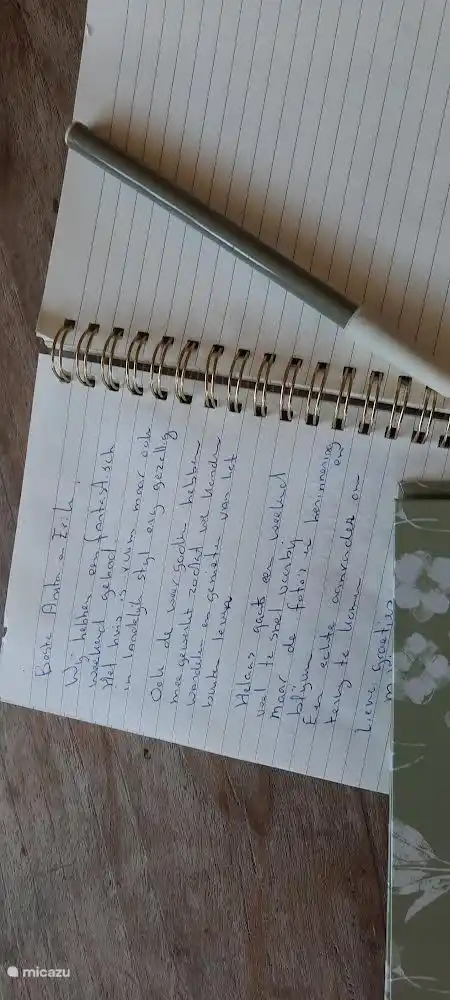 Beste Anita & Erik,
Wij hebben een fantastisch
weekend gehad.
Het huis is ruim maar ook
in landelijk stijl erg gezellig
Ook de weer goden hebben
mee gewerkt zodat we konden
wandelen en genieten van het
buiten leven
Helaas gaat een weekend
veel te snel voorbij
maar de foto's en herinnering
blijven
Een echte aanrader om
terug te komen
Lieve groetjes
micazu